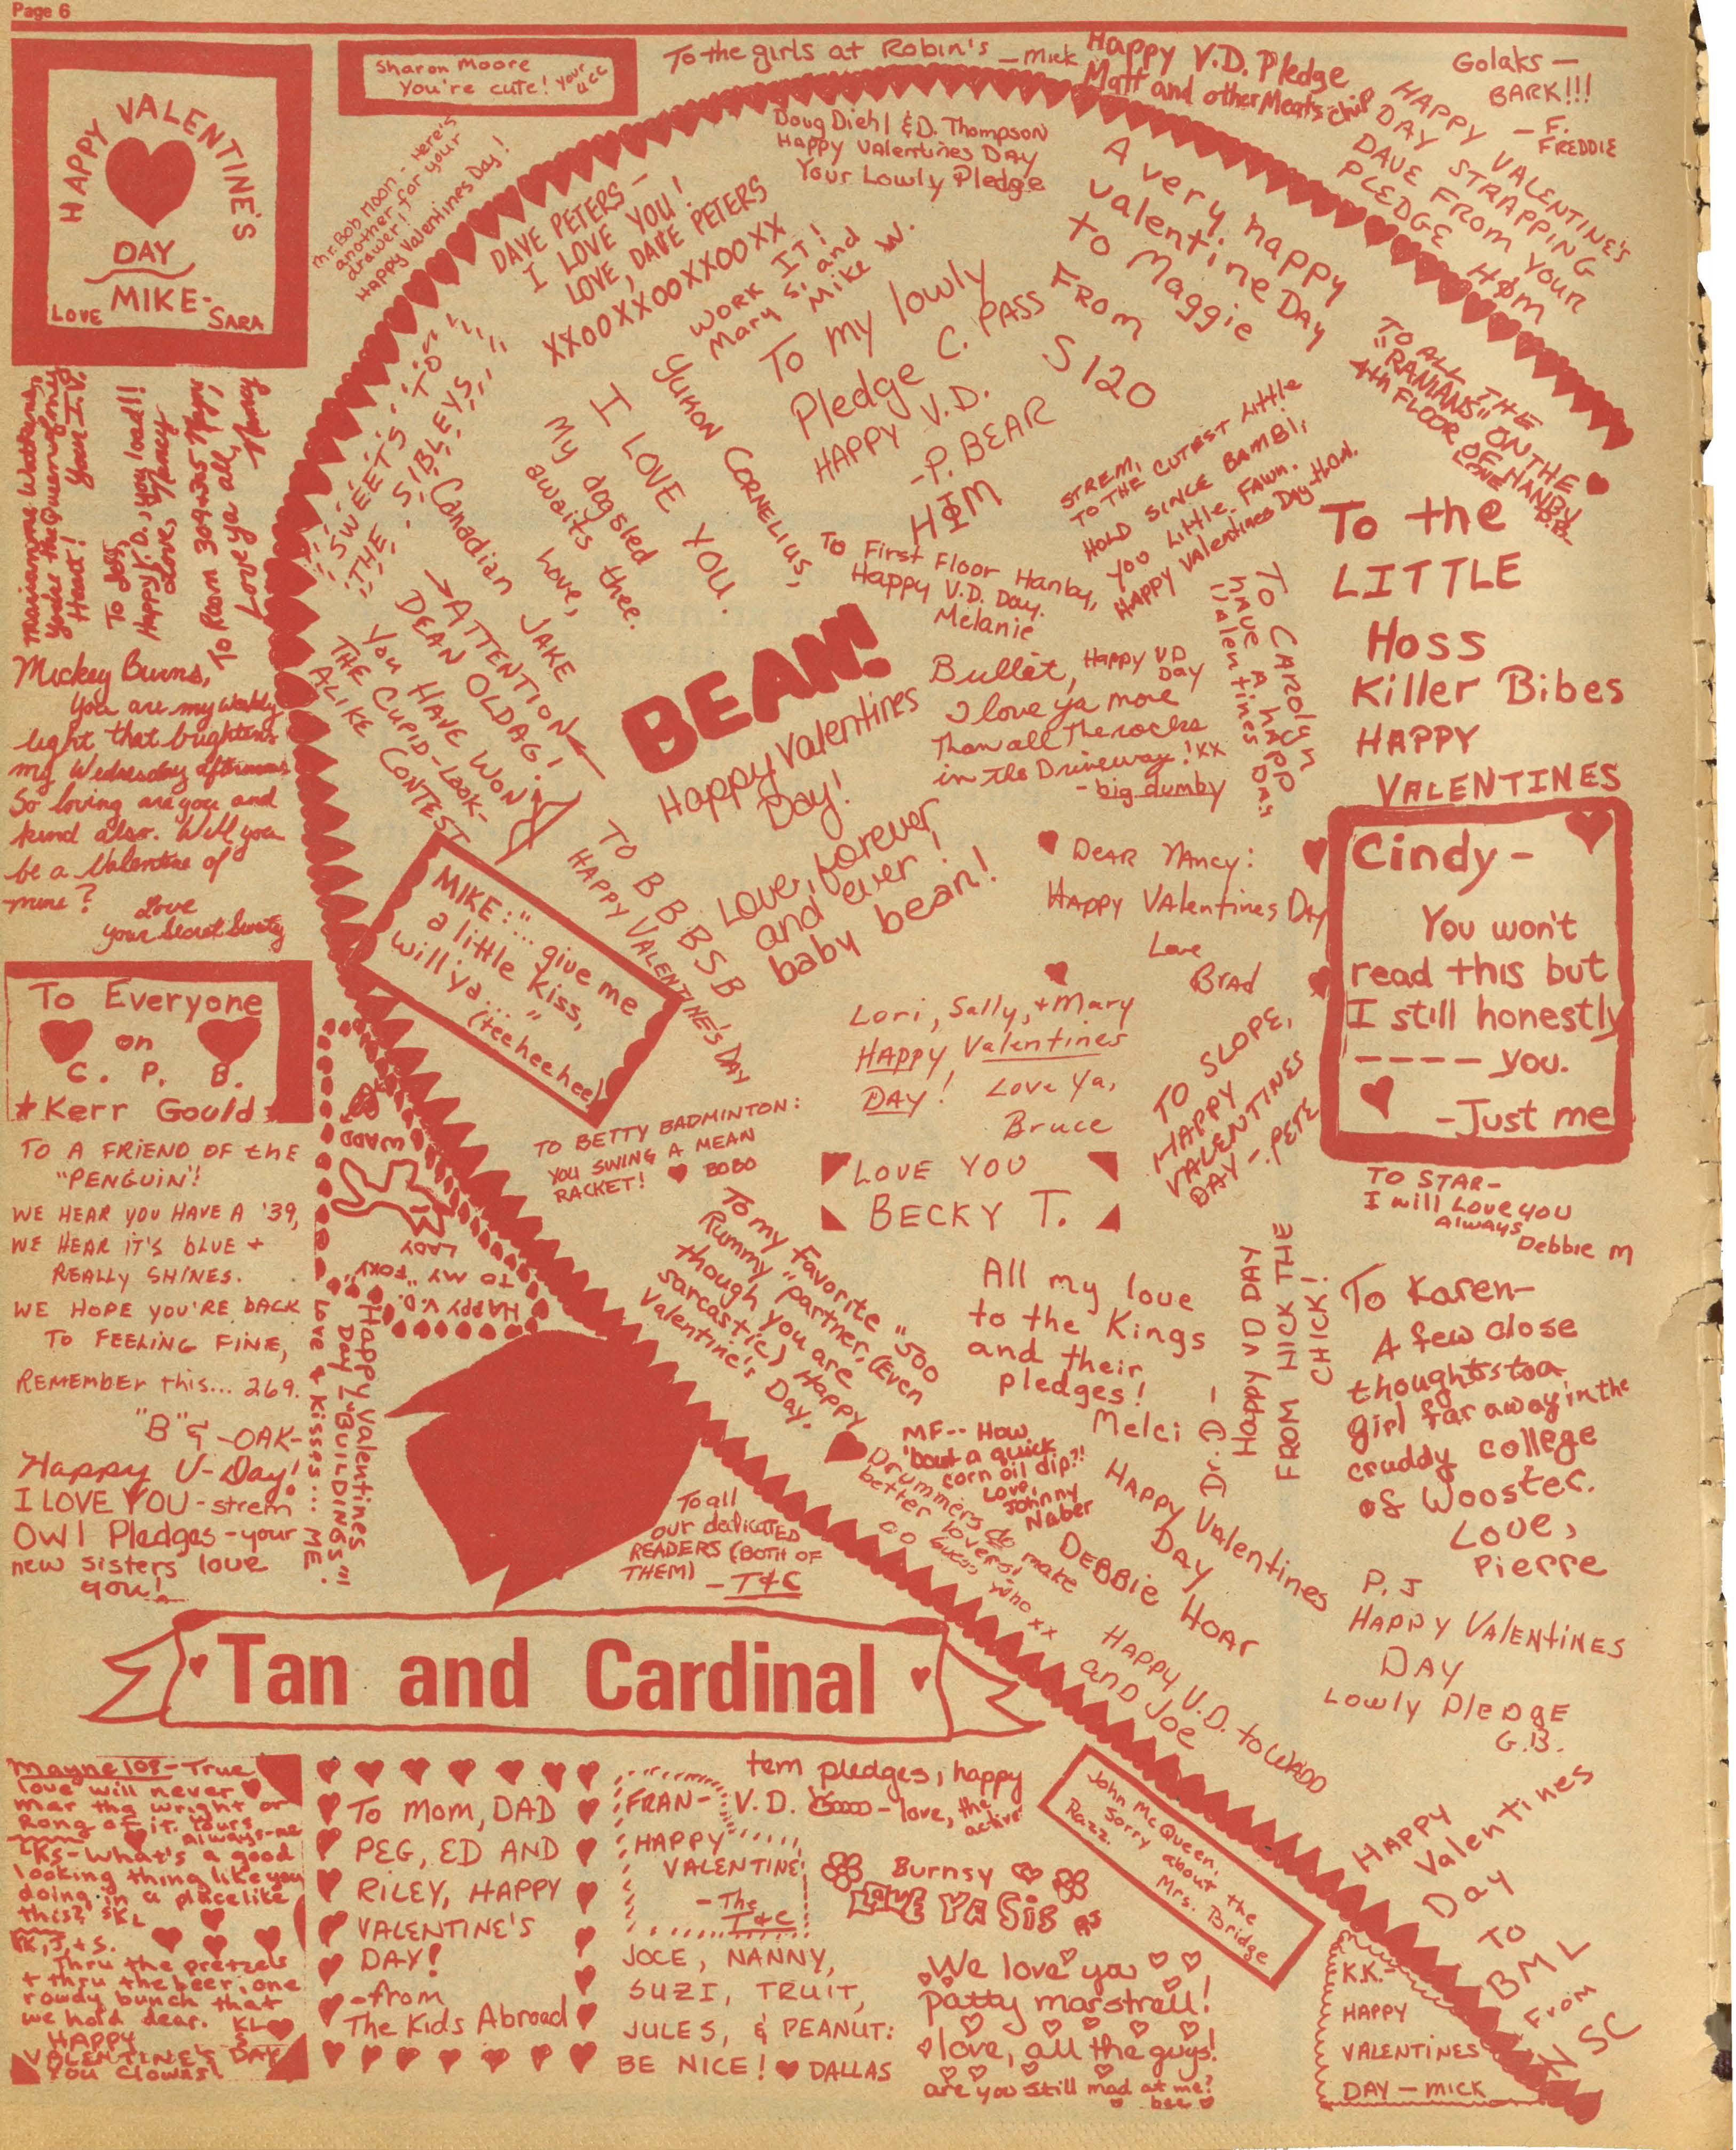 Page 6
HAPPY VALENTINE'S
DAY
MIKE-
LOVE SARA
Sharon Moore
You're cute! your
ucc
To the girls at Robin's - Mick
Happy V.D. Pledge
Matt and other Meats
Golaks -
BARK!!!
- F.
FREDDIE
HAPPY VALENTINE'S
DAY STRAPPING
DAVE FROM YOUR
PLEDGE HØM
Mr. Bob Moon - Here's
another for your
drawer!
Happy Valentines Day!
Doug Diehl & D. Thompson
Happy Valentines Day
Your Lowly Pledge
DAVE PETERS -
I LOVE YOU!
LOVE, DAVE PETERS
XXOOXXOOXXOOXX
WORK IT!
Mary S. and
Mike W.
A very happy
valentine Day
to Maggie
From
S120
To my lowly
Pledge C. PASS
HAPPY V.D.
-P. BEAR
HΦM
TO ALL THE
"RANIANS" ON THE
4th FLOOR OF HANBY
LOVE
D.B.
"SWEETS" TO
THE SIBLEYS
Yukon Cornelius,
I LOVE YOU.
My dogsled
awaits thee.
Love,
Canadian JAKE
STREM,
TO THE CUTEST Little
HOLD SINCE BAMBI,
you little Fawn.
Happy Valentines Day
To First Floor Hanby,
Happy V.D. Day.
Melanie
Marianne Watkins,
you're the Queen of my
Heart!
To Jeff,
Happy V.D., you toad!!
Love, Nancy
To Room 309 was Mayne
Love ya all,
Nancy
ATTENTION
DEAN OLDAG!
You HAVE WON
THE CUPID-LOOK-
ALIKE CONTEST
BEAN!
Happy Valentines
Day!
Love, forever
and ever,
baby bean!
Bullet, Happy VD
Day
I love ya more
Than all The rocks
in the Driveway! XX
- big dumby
TO CAROLYN
have A happ
Valentines Day
To the
LITTLE
Hoss
Killer Bibes
HAPPY
VALENTINES
Mickey Burns,
You are my weekly
light that brightens
my Wednesday afternoons
So loving are you and
kind also. Will you
be a Valentine of
mine?
Love
your Secret Sweety
MIKE: "... give me
a little kiss,
will ya..."
(teeheehee)
TO B B B S B
HAPPY VALENTINE'S DAY
DEAR NANCY:
HAPPY VAlentines DAy
Love
Brad
Cindy -
You won't
read this but
I still honestly
---- you.
-Just me
Lori, Sally, + Mary
Happy Valentines
DAY! Love Ya,
Bruce
TO SLOPE,
HAPPY
VALENTINES
DAY - PETE
To Everyone
on
C. P. B.
*Kerr Gould*
TO A FRIEND OF the
"PENGUIN"!
WE HEAR YOU HAVE A '39,
WE HEAR IT'S BLUE +
REALLY SHINES.
WE HOPE YOU'RE BACK
TO FEELING FINE,
REMEMBER this... 269.
"B" & -OAK-
WADD
HAPPY V.D.
TO MY "FOXY"
LADY
Happy Valentines
Day "BUILDINGS"!!
Love & Kisses... ME!
TO BETTY BADMINTON:
YOU SWING A MEAN
RACKET! ♥ BOBO
LOVE YOU
BECKY T.
TO STAR-
I will Love you
always
Debbie M
To my favorite "500
Rummy" partner, (Even
though you are
sarcastic) Happy
Valentine's Day.
All my love
to the Kings
and their
pledges!
Melci
Dr. D -
Happy VD DAY
FROM NICK THE
CHICK!
To Karen-
A few close
thoughts to a
girl far away in the
cruddy college
of Wooster.
Love,
Pierre
Happy V-Day!
I LOVE YOU - strem
Owl Pledges - your
new sisters love
you!
MF-- How
'bout a quick
corn oil dip?!
Love,
Johnny
Naber
Drummers do make
better lovers!
Guess who xx
To all
our dedicated
READERS (BOTH OF
THEM)
- T&C
HAPPY Valentines
DAY
DEBBIE HOAR
HAPPY V.D. to WADD
and Joe
P.J
HAPPY VALENTINES
DAY
Lowly Pledge
G.B.
Tan and Cardinal
Mayne 108 - True
love will never
mar the wright or
Rong of it. Yours
Always-me
TKS - What's a good
looking thing like you
doing in a place like
this? SKL
KK, J, + S.
Thru the pretzels
+ thru the beer, one
rowdy bunch that
we hold dear. KL
HAPPY
VALENTINE'S DAY
YOU Clowns!
To Mom, DAD
PEG, ED AND
RILEY, HAPPY
VALENTINE'S
DAY!
-from
The Kids Abroad
FRAN-
HAPPY
VALENTINE!
- The
T&C
tem pledges, happy
V.D. - love, the
active
Burnsy
LOVE YA SIS
JOCE, NANNY,
SUZI, TRUIT,
JULES, & PEANUT:
BE NICE! ♥ DALLAS
We love ya
patty marstrell!
love, all the guys!
are you still mad at me?
bee
John McQueen,
Sorry about the
Razz. Mrs. Bridge
HAPPY
Valentines
Day
TO
BML
From
NSC
K.K.-
HAPPY
VALENTINES
DAY - MICK